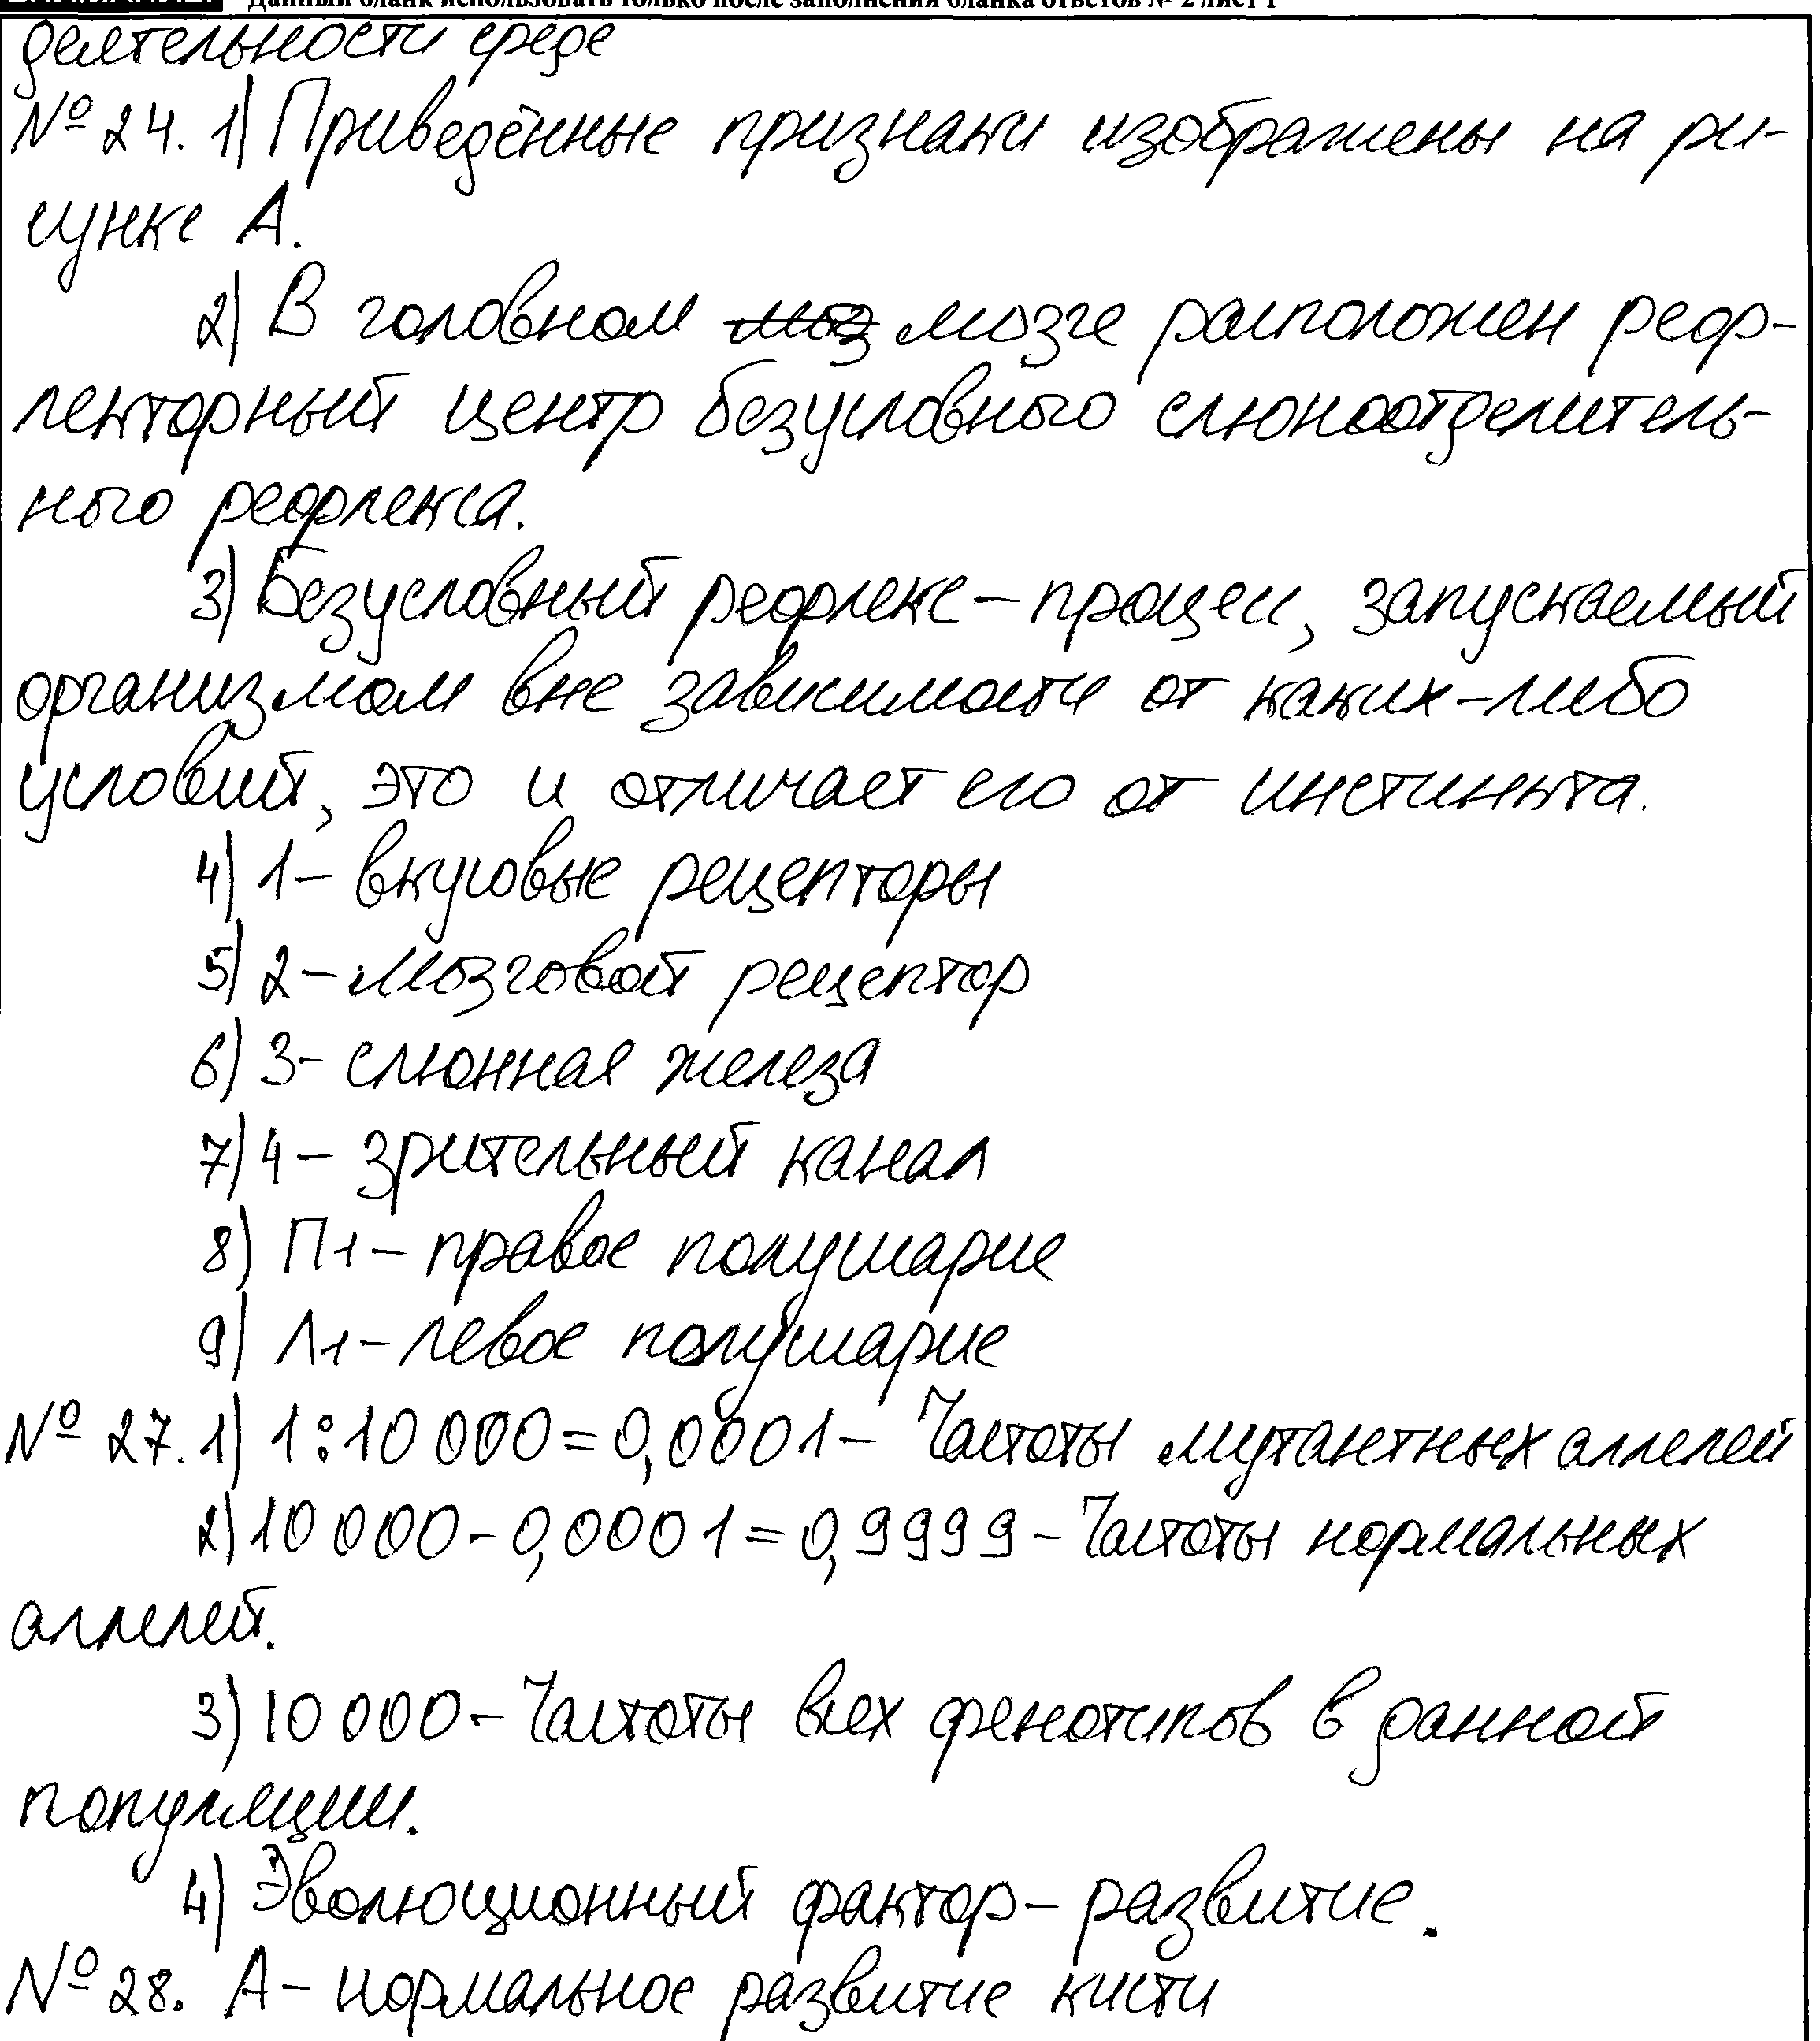 Данный бланк использовать только после заполнения бланка ответов № 2 лист 1
деятельности среде
№ 24. 1) Приведённые признаки изображены на ри-
сунке А.
2) В головном моз мозге расположен реф-
лекторный центр безусловного слюноотделитель-
ного рефлекса.
3) Безусловный рефлекс – процесс, запускаемый
организмом вне зависимости от каких-либо
условий, это и отличает его от инстинкта.
4) 1 – вкусовые рецепторы
5) 2 – мозговой рецептор
6) 3 - слюнная железа
7) 4 – зрительный канал
8) П1 – правое полушарие
9) Л1 – левое полушарие
№ 27. 1) 1:10 000 = 0,0001 – Частоты мутантных аллелей
2) 10 000 - 0,0001 = 0,9999 – Частоты нормальных
аллелей.
3) 10 000 – Частоты всех фенотипов в данной
популяции.
4) Эволюционный фактор – развитие.
№ 28. А – нормальное развитие кисти